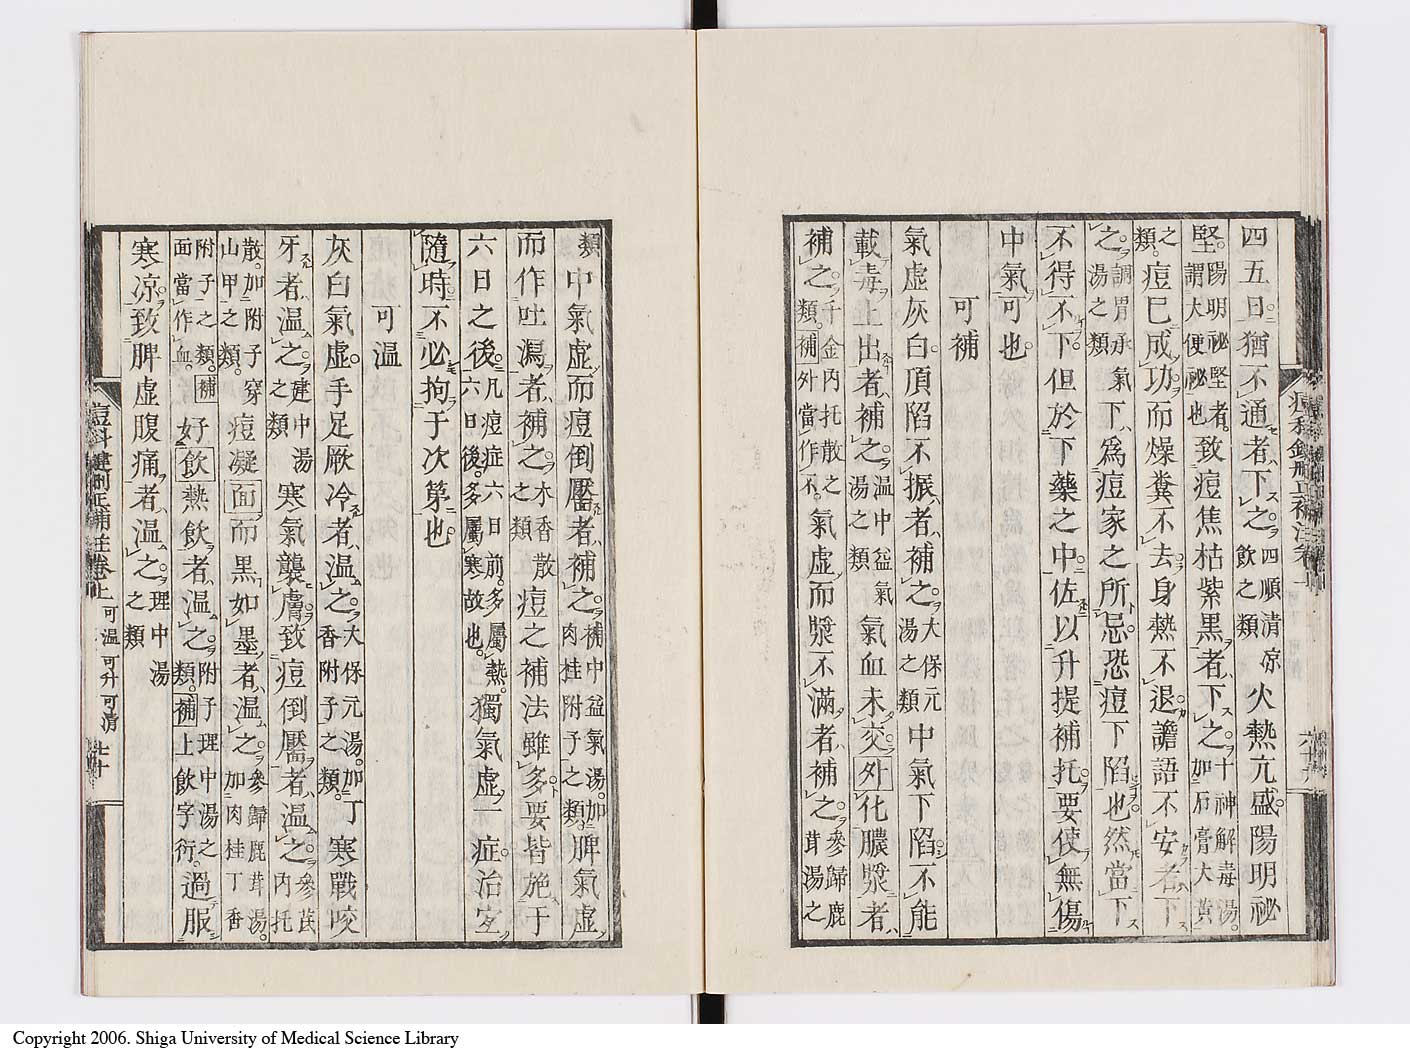 四五日猶不通者下之四順清凉飲之類火熱亢盛陽明祕
堅陽明祕堅者謂大便祕也致痘焦枯紫黒者下之十神解毒湯加石膏大黄
之類痘已成功而燥糞不去身熱不退譫語不安者下
之調胃承氣湯之類下爲痘家之所忌恐痘下陷也然當下
不得不下但於下藥之中佐以升提補托要使無傷
中氣可也
可補
氣虚灰白頂陷不振者補之大保元湯之類中氣下陷不能
載毒上出者補之温中益氣湯之類氣血未交外化膿漿者
補之千金内托散之類補外當作不氣虚而漿不滿者補之參歸鹿茸湯之
類中氣虚而痘倒靨者補之補中益氣湯加肉桂附子之類脾氣虚
而作吐瀉者補之木香散之類痘之補法雖多要皆施于
六日之後凡痘症六日前多屬熱六日後多屬寒故也獨氣虚一症治宜
隨時不必拘于次第也
可温
灰白氣虚手足厥冷者温之大保元湯加丁香附子之類寒戰咬
牙者温之建中湯之類寒氣襲膚致痘倒靨者温之參芪内托
散加附子穿山甲之類痘凝面而黒如墨者温之參歸鹿茸湯加肉桂丁香
附子之類補面當作血好飲熱飲者温之附子理中湯之類補上飲字衍過服
寒凉致脾虚腹痛者温之理中湯之類
痘科鍵刪正補註卷上 可温 可升 可清 七十
Copyright 2006. Shiga University of Medical Science Library